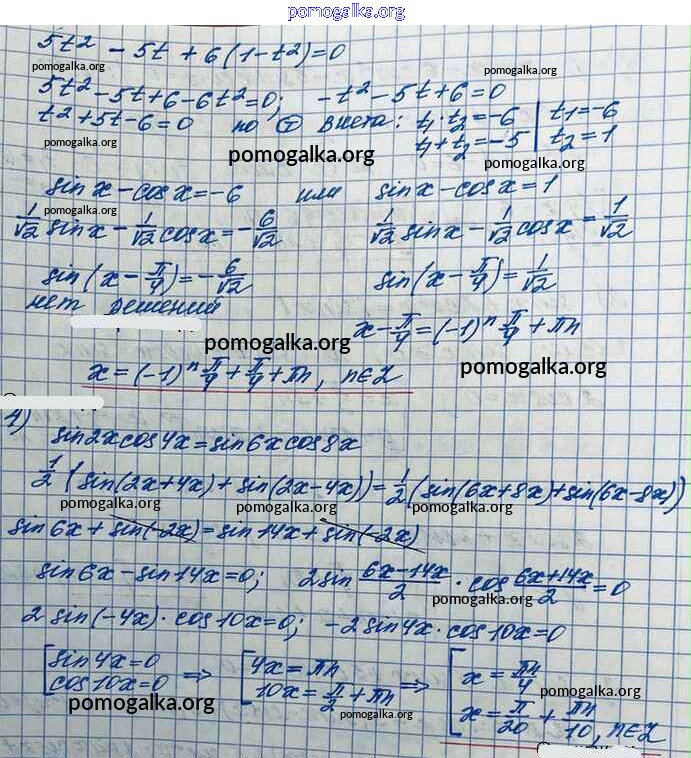 pomogalka.org
5t² - 5t + 6(1-t²)=0
pomogalka.org pomogalka.org
5t² - 5t + 6 - 6t² = 0; -t² - 5t + 6 = 0
t² + 5t - 6 = 0 по Т Виета: t₁·t₂ = -6 | t₁ = -6
t₁+t₂ = -5 | t₂ = 1
pomogalka.org pomogalka.org pomogalka.org
sin x - cos x = -6 или sin x - cos x = 1
pomogalka.org
1/√2 sin x - 1/√2 cos x = -6/√2 1/√2 sin x - 1/√2 cos x = 1/√2
sin(x - π/4) = -6/√2 sin(x - π/4) = 1/√2
нет решений
pomogalka.org x - π/4 = (-1)ⁿ π/4 + πn
x = (-1)ⁿ π/4 + π/4 + πn, n∈Z pomogalka.org
4)
sin2x cos4x = sin6x cos8x
1/2 (sin(2x+4x) + sin(2x-4x)) = 1/2 (sin(6x+8x) + sin(6x-8x))
pomogalka.org pomogalka.org pomogalka.org
sin6x + sin(-2x) = sin14x + sin(-2x)
sin6x - sin14x = 0; 2sin (6x-14x)/2 · cos (6x+14x)/2 = 0
pomogalka.org
2 sin(-4x) · cos10x = 0; -2sin4x · cos10x = 0
[ sin4x = 0 ⇒ [ 4x = πn ⇒ [ x = πn/4
cos10x = 0 10x = π/2 + πn x = π/20 + πn/10, n∈Z
pomogalka.org pomogalka.org pomogalka.org